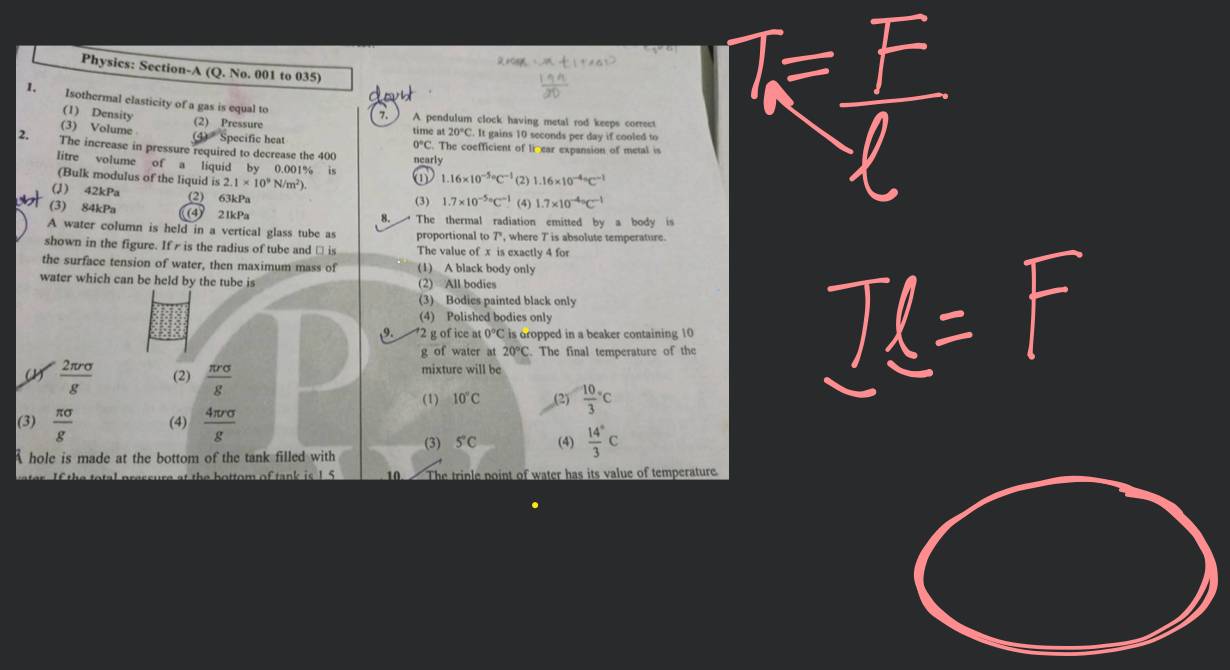 Physics: Section-A (Q. No. 001 to 035)
1. Isothermal elasticity of a gas is equal to
(1) Density (2) Pressure
(3) Volume (4) Specific heat
2. The increase in pressure required to decrease the 400
litre volume of a liquid by 0.001% is
(Bulk modulus of the liquid is 2.1 × 10⁹ N/m²).
(1) 42kPa (2) 63kPa
(3) 84kPa (4) 21kPa
A water column is held in a vertical glass tube as
shown in the figure. If r is the radius of tube and □ is
the surface tension of water, then maximum mass of
water which can be held by the tube is
(1) 2πrσ/g (2) πrσ/g
(3) πσ/g (4) 4πrσ/g
A hole is made at the bottom of the tank filled with
water. If the total pressure at the bottom of tank is 1.5
doubt
7. A pendulum clock having metal rod keeps correct
time at 20°C. It gains 10 seconds per day if cooled to
0°C. The coefficient of linear expansion of metal is
nearly
(1) 1.16×10⁻⁵°C⁻¹ (2) 1.16×10⁻⁴°C⁻¹
(3) 1.7×10⁻⁵°C⁻¹ (4) 1.7×10⁻⁴°C⁻¹
8. The thermal radiation emitted by a body is
proportional to Tˣ, where T is absolute temperature.
The value of x is exactly 4 for
(1) A black body only
(2) All bodies
(3) Bodies painted black only
(4) Polished bodies only
9. 2 g of ice at 0°C is dropped in a beaker containing 10
g of water at 20°C. The final temperature of the
mixture will be
(1) 10°C (2) 10/3 °C
(3) 5°C (4) 14°/3 C
10. The triple point of water has its value of temperature
T = F/l
Tl = F